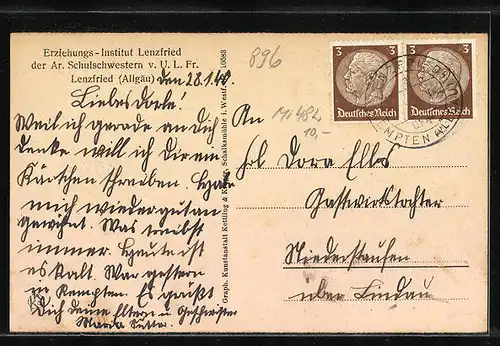 Erziehungs-Institut Lenzfried
der Ar. Schulschwestern v. U. L. Fr.
Lenzfried (Allgäu) den 28.1.40.
Liebes Dorle!
Weil ich gerade an Dich
denke will ich Dir ein
Kärtchen schreiben. Habe
mich wieder gut an
gewöhnt. Was treibst
immer. Heute ist
es kalt. War gestern
in Kempten. Es grüßt
Dich deine Eltern u Geschwister
Maria
Graph. Kunstanstalt Kettling & Krüger, Schalksmühle i. Westf.
896
Mi 482
10,-
3
3
Deutsches Reich
Deutsches Reich
KEMPTEN
An
Frl Dora
Gastwirtstochter
Niederstaufen
über Lindau